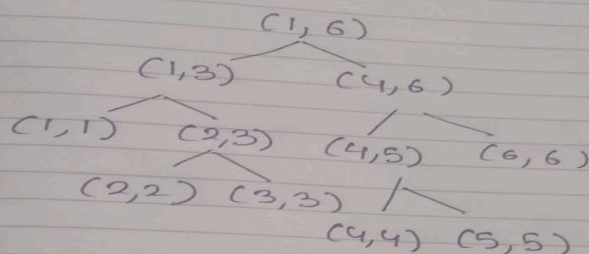 (1, 6)
(1,3) (4,6)
(1,1) (2,3) (4,5) (6,6)
(2,2) (3,3)
(4,4) (5,5)